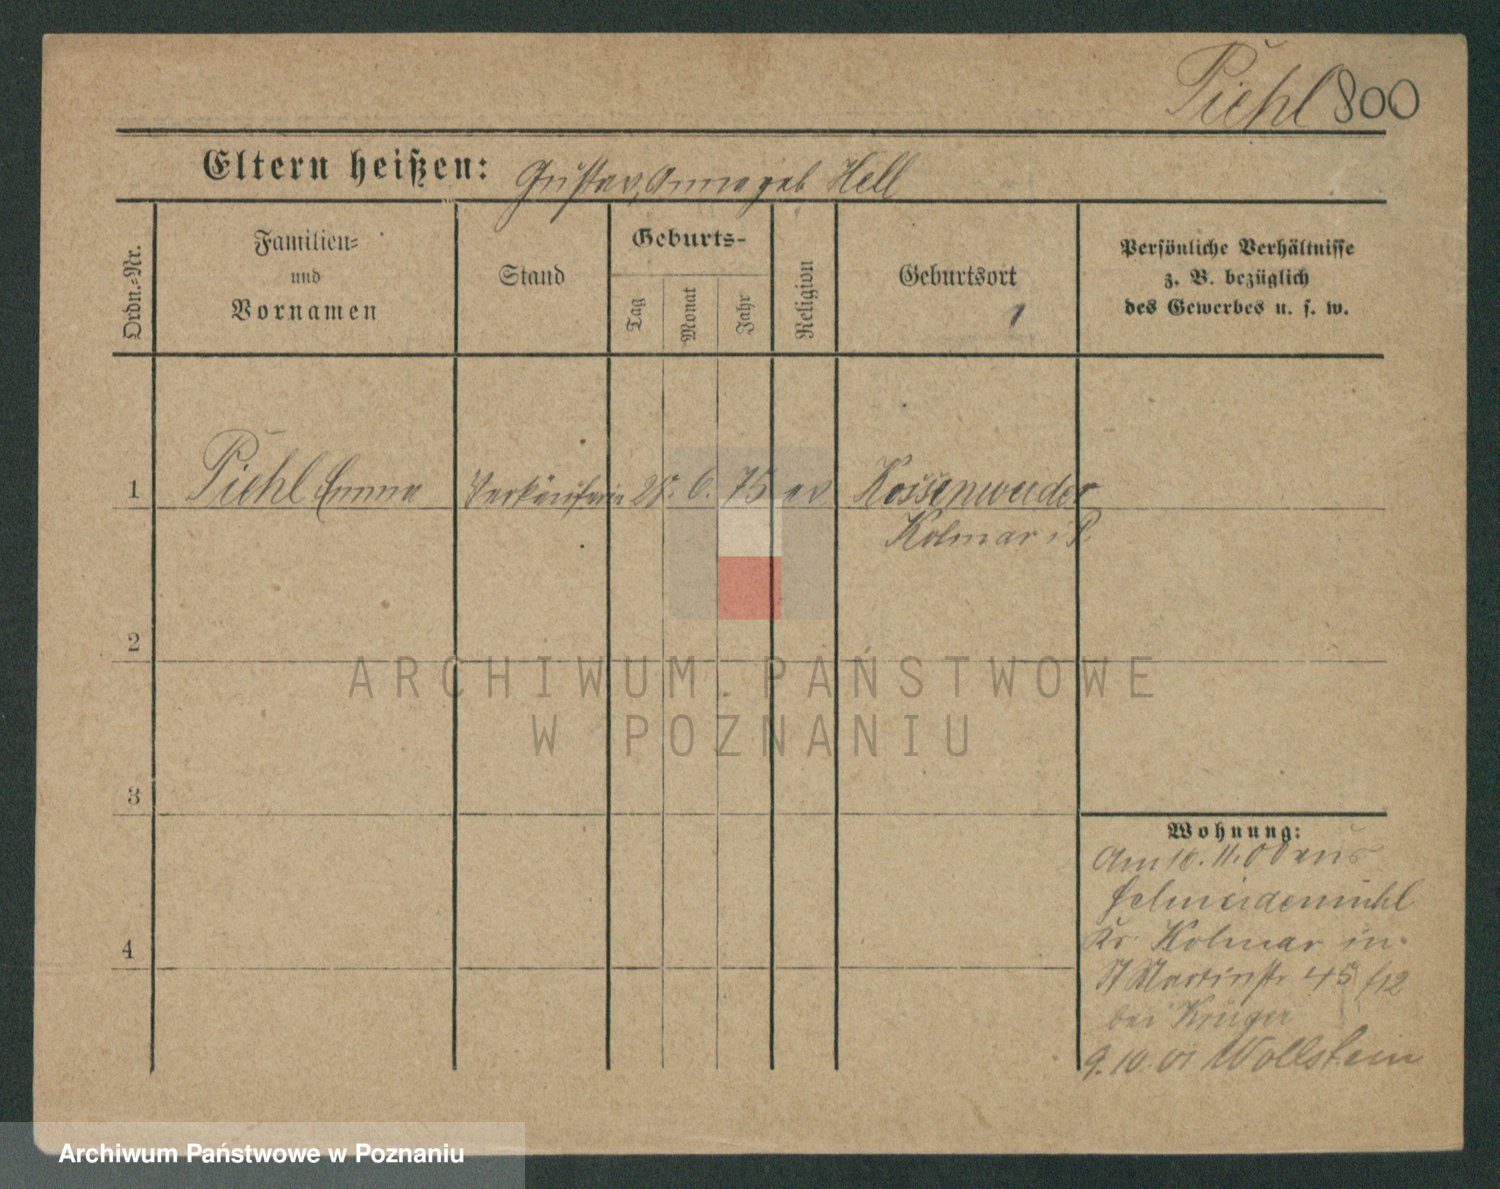 Piehl 800
Eltern heißen: Gustav, Anna geb Hell
Ordn.-Nr.
Familien-
und
Vornamen
Stand
Geburts-
Tag
Monat
Jahr
Religion
Geburtsort
Persönliche Verhältnisse
z. B. bezüglich
des Gewerbes u. s. w.
1 Piehl Emma Verkäuferin 25. 6. 75 ev Kossenwerder
Kolmar i P.
2
3
4
Wohnung:
Am 10. 11. 00 aus
Schneidemühl
Kr. Kolmar in
St Martinstr 45
bei Krüger
9. 10. 01 Wollstein
ARCHIWUM PAŃSTWOWE
W POZNANIU
Archiwum Państwowe w Poznaniu